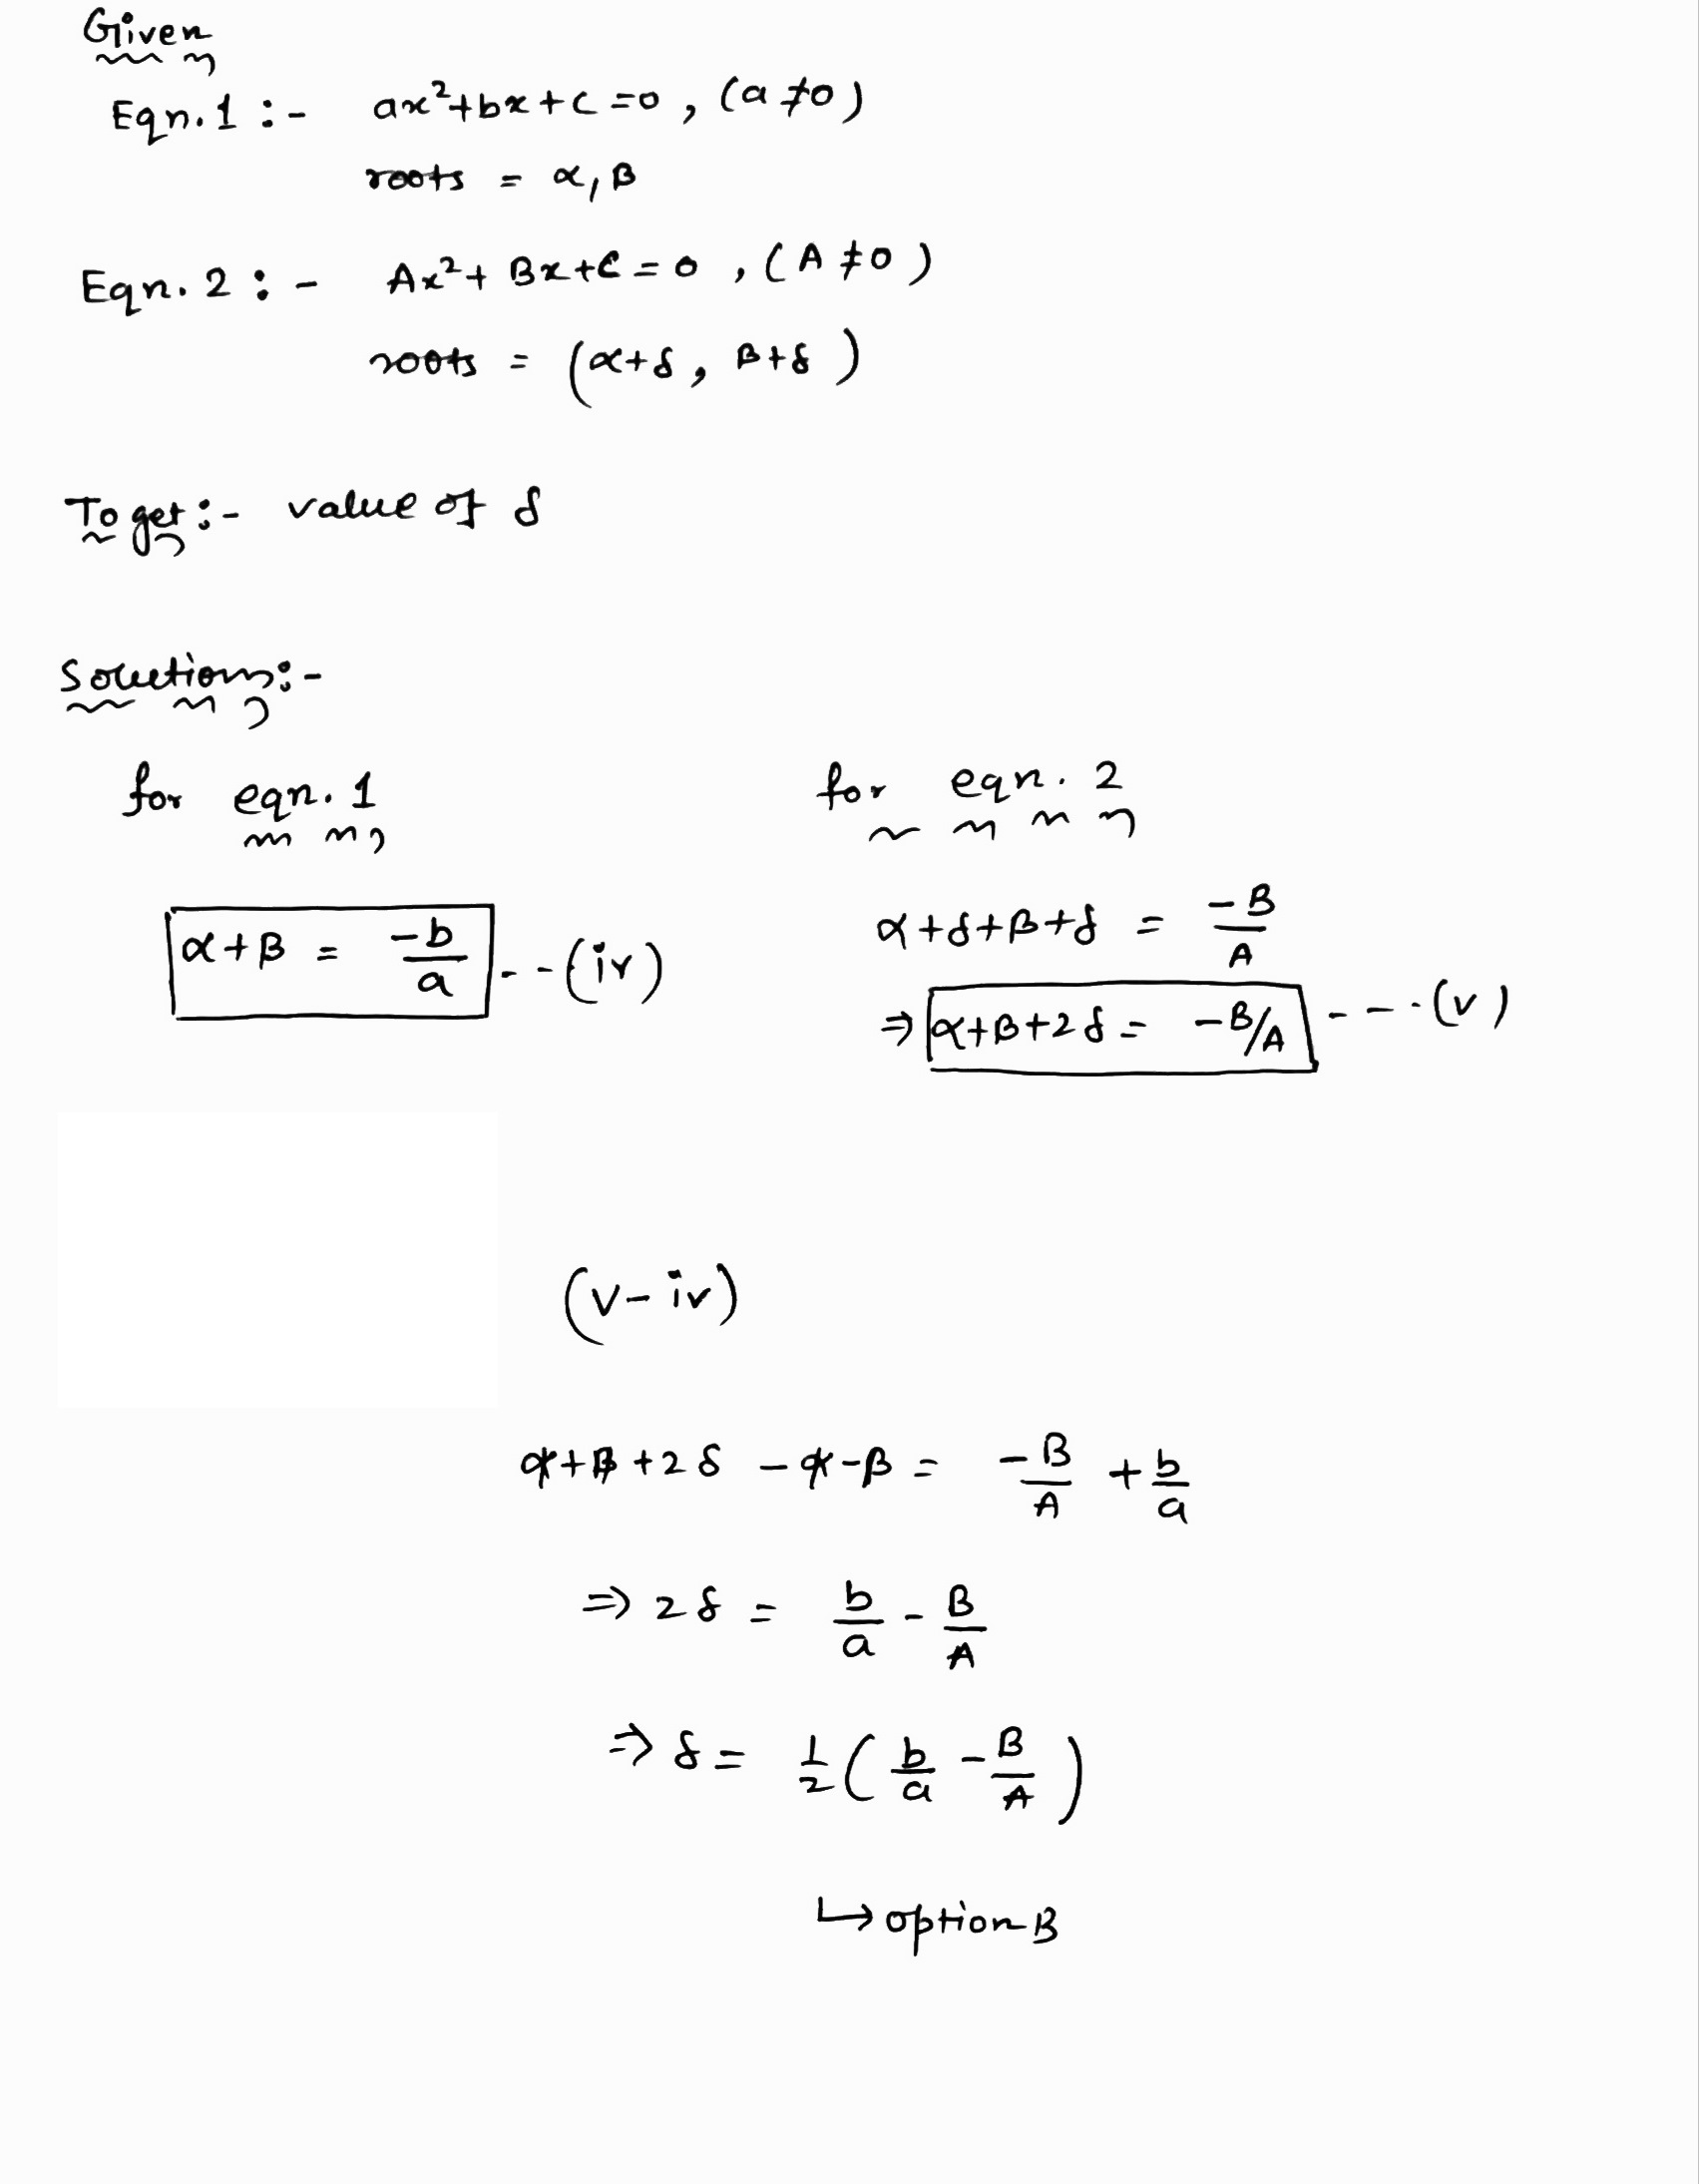 Given
Eqn. 1 :- ax²+bx+c=0, (a≠0)
roots = α, β
Eqn. 2 :- Ax²+Bx+C=0, (A≠0)
roots = (α+δ, β+δ)
To get:- value of δ
Solution:-
for eqn. 1
α+β = -b/a --(iv)
for eqn. 2
α+δ+β+δ = -B/A
⇒ α+β+2δ = -B/A ---(v)
(v-iv)
α+β+2δ-α-β = -B/A + b/a
⇒ 2δ = b/a - B/A
⇒ δ = 1/2 (b/a - B/A)
↳ option B